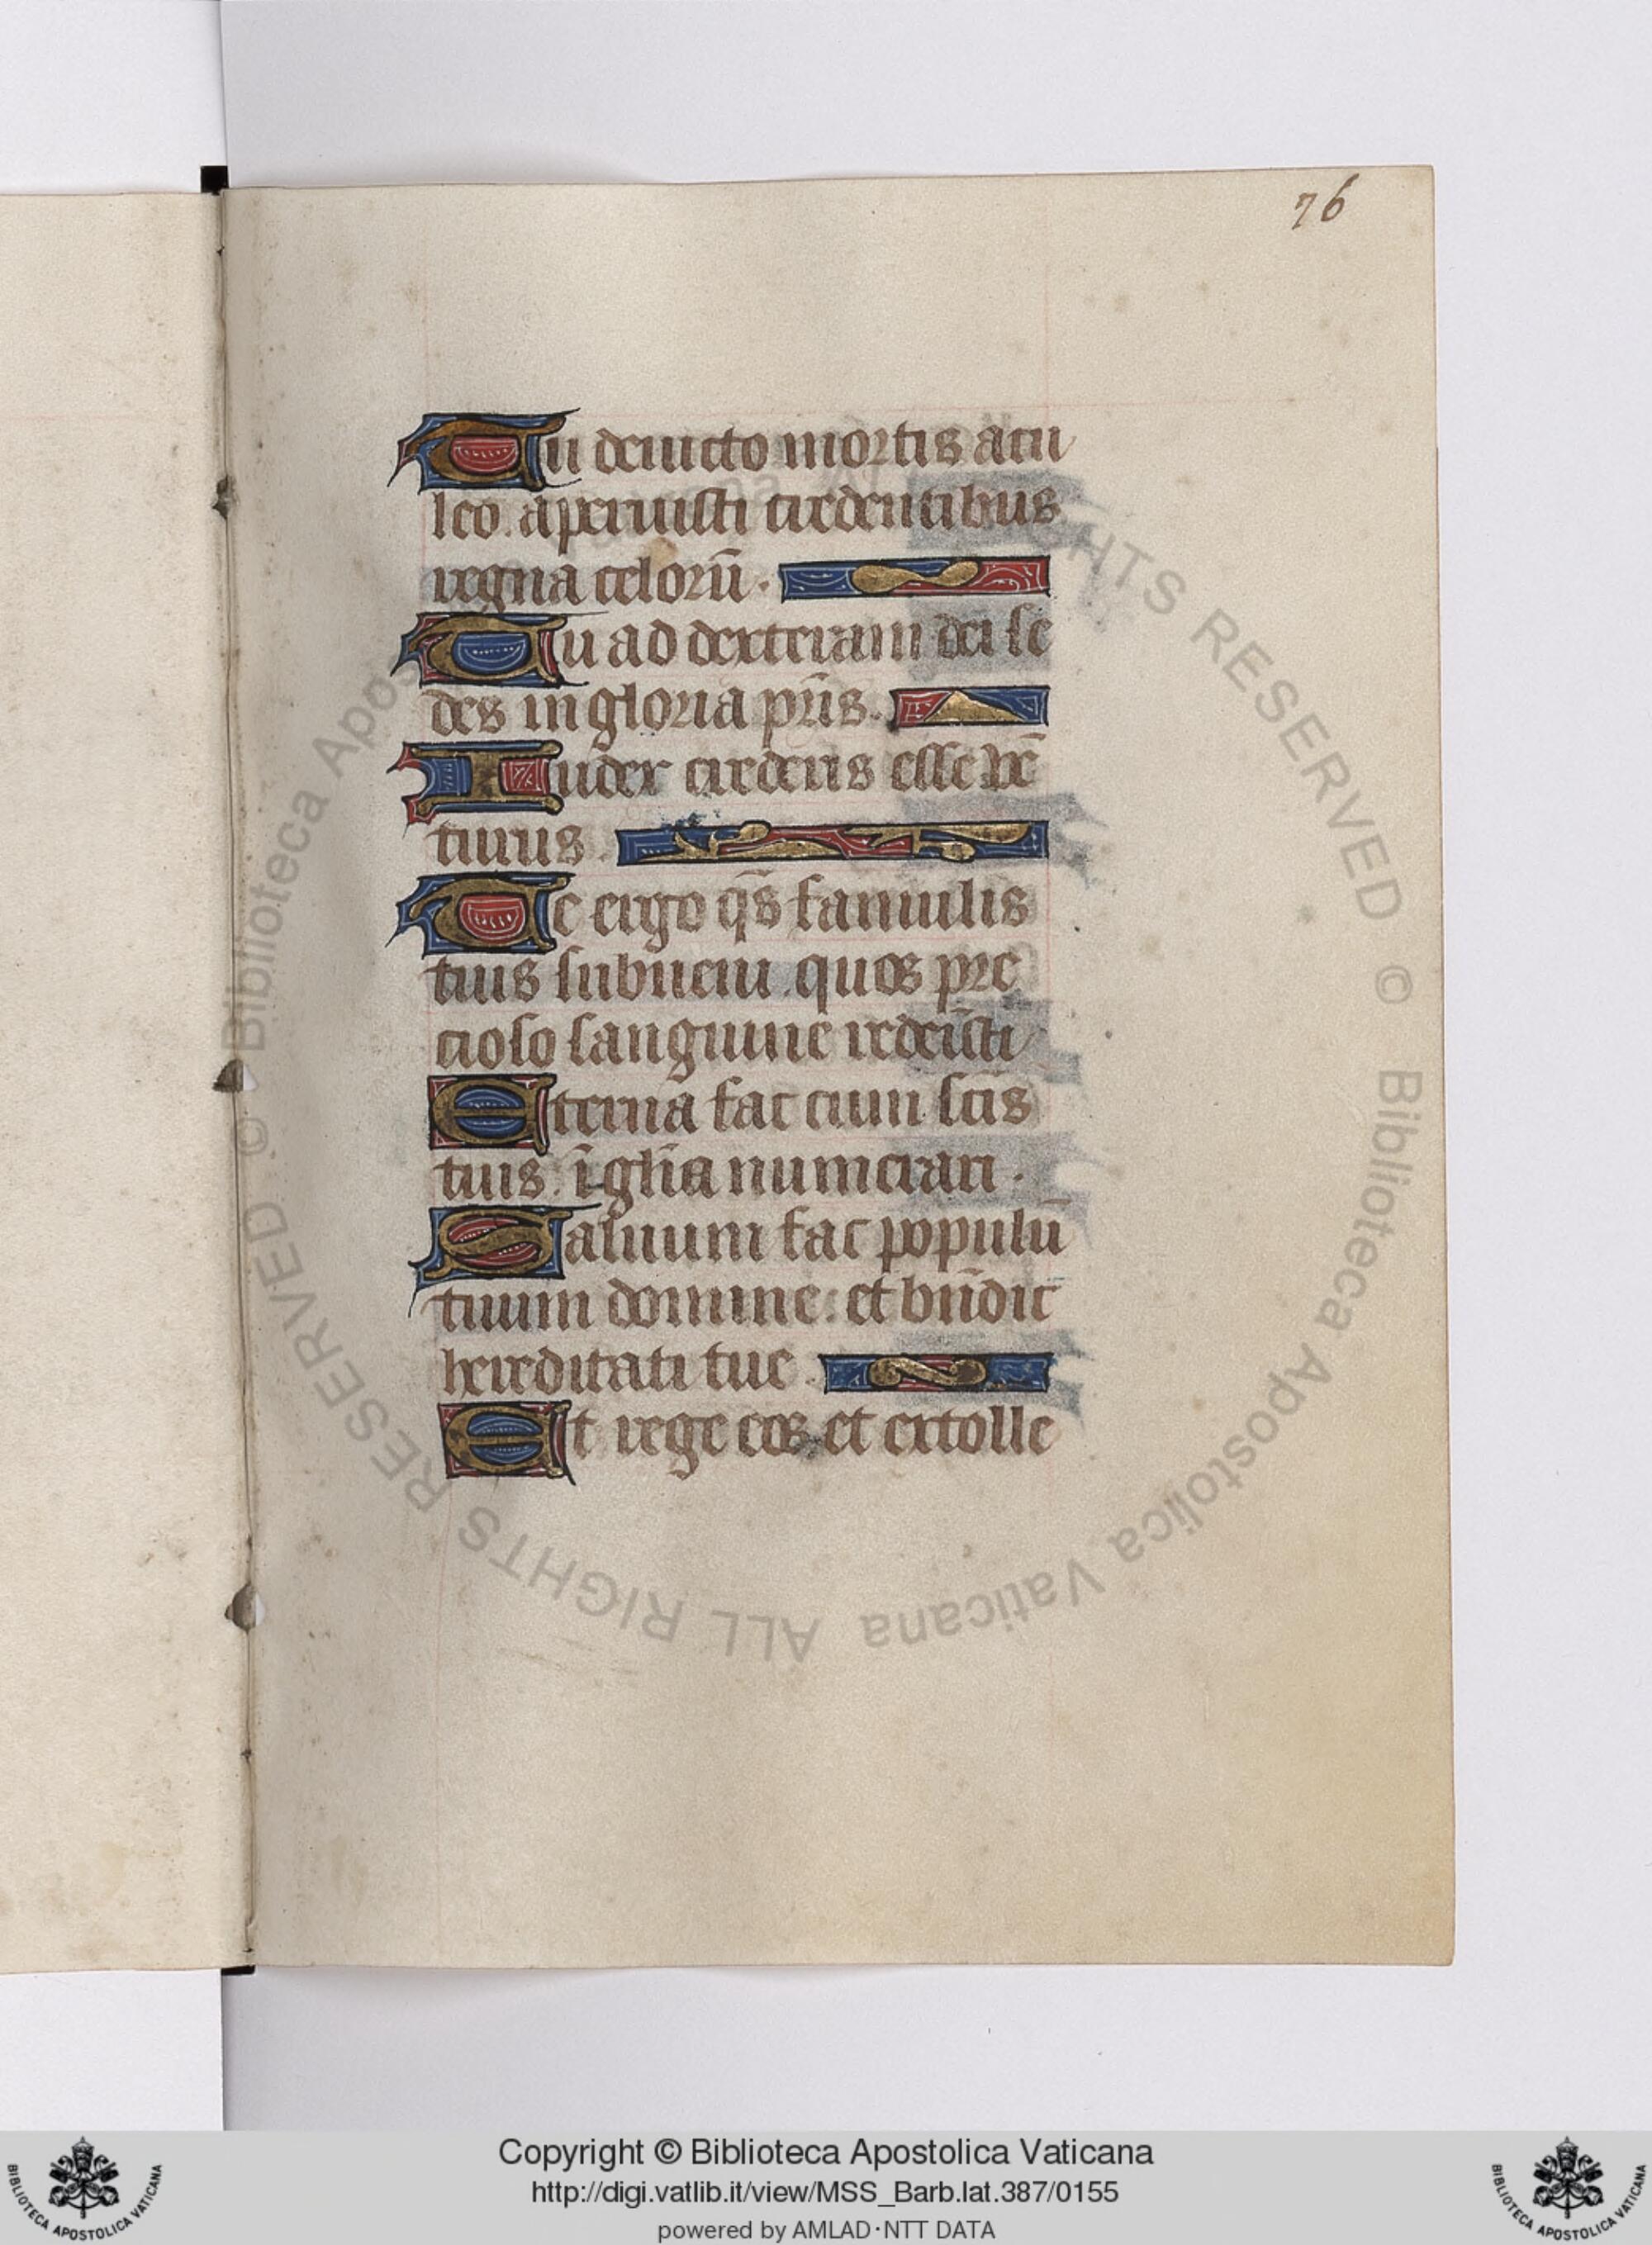 76
Tu deuicto mortis acu
leo. aperuisti credentibus
regna celorū.
Tu ad dexteram dei se
des in gloria pr̄is.
Iudex crederis esse vē
turus.
Te ergo qs̄ famulis
tuis subueni. quos pre
cioso sanguine redem̄isti
Eternā fac cum sc̄is
tuis. ī gl̄ia numerari.
Saluum fac populū
tuum domine. et bn̄dic
hereditati tue.
Et rege eos. et extolle
© Biblioteca Apostolica Vaticana ALL RIGHTS RESERVED
Copyright © Biblioteca Apostolica Vaticana
http://digi.vatlib.it/view/MSS_Barb.lat.387/0155
powered by AMLAD·NTT DATA
BIBLIOTECA APOSTOLICA VATICANA
BIBLIOTECA APOSTOLICA VATICANA